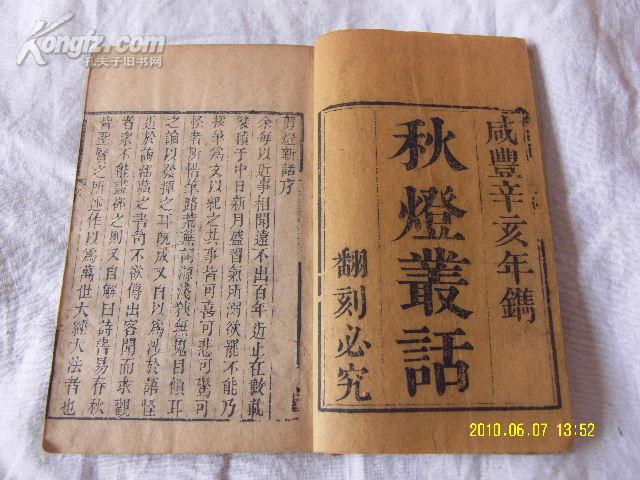 Kongfz.com
孔夫子旧书网
咸豐辛亥年鐫
秋燈叢話
翻刻必究
剪燈新話序
余每以近事相聞遠不出百年近止在數載
襞積于中日新月盛習氣所溺欲罷不能乃
援筆為文以紀之其事皆可喜可悲可驚可
怪者所惜筆路荒蕪詞源淺狹無嵬目傾耳
之論以發揮之耳既成又自以為涉於語怪
近於誨淫藏之書笥不欲傳出客聞而求觀
者衆不能盡卻之則又自解曰詩書易春秋
皆聖賢之所述作以為萬世大經大法者也
2010.06.07 13:52